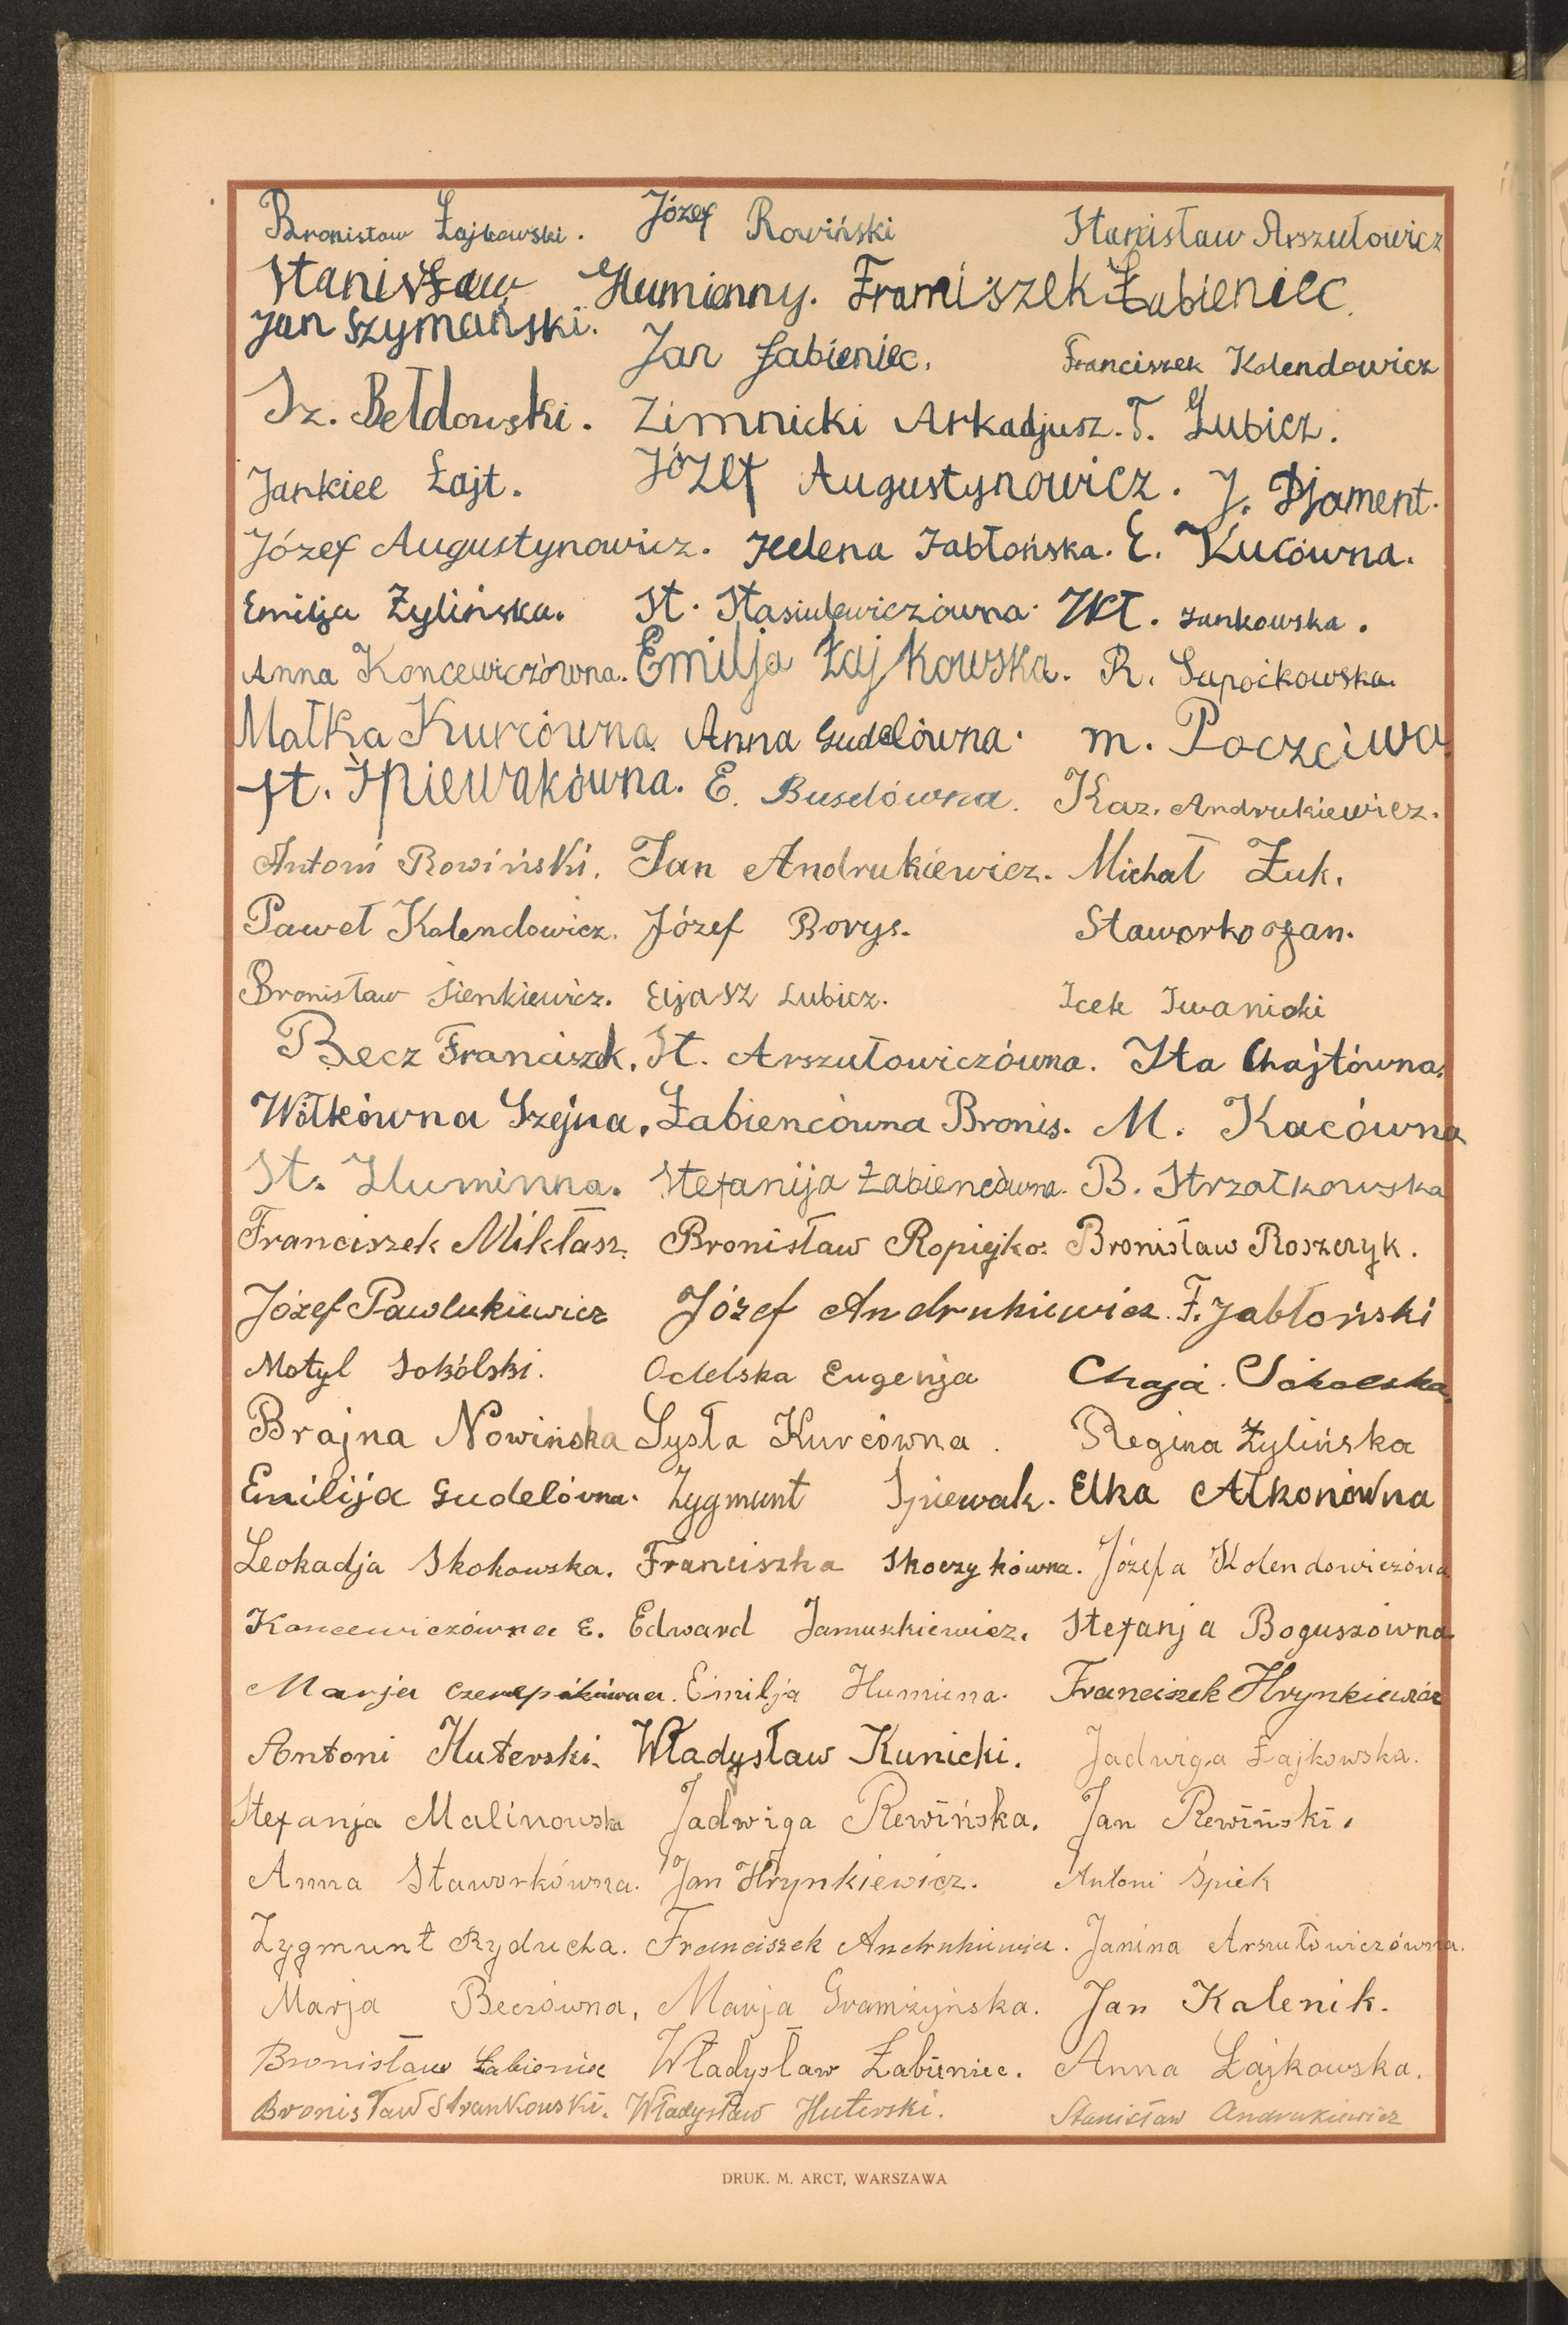 Bronisław Łajkowski. Józef Rowiński Stanisław Arszułowicz
Stanisław Humienny. Framiszek Łabieniec.
Jan Szymański.
Jan Łabieniec. Franciszek Kolendowicz
Sz. Bełdowski. Zimnicki Arkadjusz. T. Lubicz.
Jankiel Łajt. Józef Augustynowicz. J. Djament.
Józef Augustynowicz. Helena Jabłońska. E. Kucówna.
Emilja Żylińska. St. Stasiulewiczówna. Wł. Jankowska.
Anna Koncewiczówna. Emilja Łajkowska. R. Sapoćkowska.
Małka Kurcówna. Anna Gudelówna. m. Poczciwa
St. Śpiewakówna. E. Buselówna. Kaz. Andrukiewicz.
Antoni Rowiński. Jan Andrukiewicz. Michał Żuk.
Paweł Kolendowicz. Józef Borys. Staworko
Bronisław Sienkiewicz. Eljasz Lubicz. Icek Iwanicki
Becz Franciszek. St. Arszułowiczówna. Ita Chajtówna.
Wilkówna Szejna. Łabiencówna Bronis. M. Kacówna
St. Huminna. Stefanija Łabiencówna. B. Strzałkowska
Franciszek Mikłasz. Bronisław Ropiejko. Bronisław Roszczyk.
Józef Pawlukiewicz Józef Andrukiewicz. F. Jabłoński
Motyl Sokólski. Odelska Eugenja Chaja Sokolska.
Brajna Nowińska Sysła Kurcówna. Regina Żylińska
Emilija Gudelówna. Zygmunt Śpiewak. Elka Ałkonówna
Leokadja Skokowska. Franciszka Skoczykówna. Józefa Kolendowiczóna
Koncewiczówna E. Edward Jamuszkiewicz. Stefanja Boguszówna
Marja Czerepikówna. Emilja Humiena. Franciszek Hrynkiewicz
Antoni Huterski. Władysław Kunicki. Jadwiga Łajkowska.
Stefanja Malinowska Jadwiga Rewińska. Jan Rewiński.
Anna Staworkówna. Jan Hrynkiewicz. Antoni Śpiek
Zygmunt Ryducha. Franciszek Andrukiewicz. Janina Arszułowiczówna.
Marja Beczówna, Marja Gramzyńska. Jan Kalenik.
Bronisław Łabieniec Władysław Łabieniec. Anna Łajkowska.
Bronisław Strankowski. Władysław Huterski. Stanisław Andrukiewicz
DRUK. M. ARCT, WARSZAWA